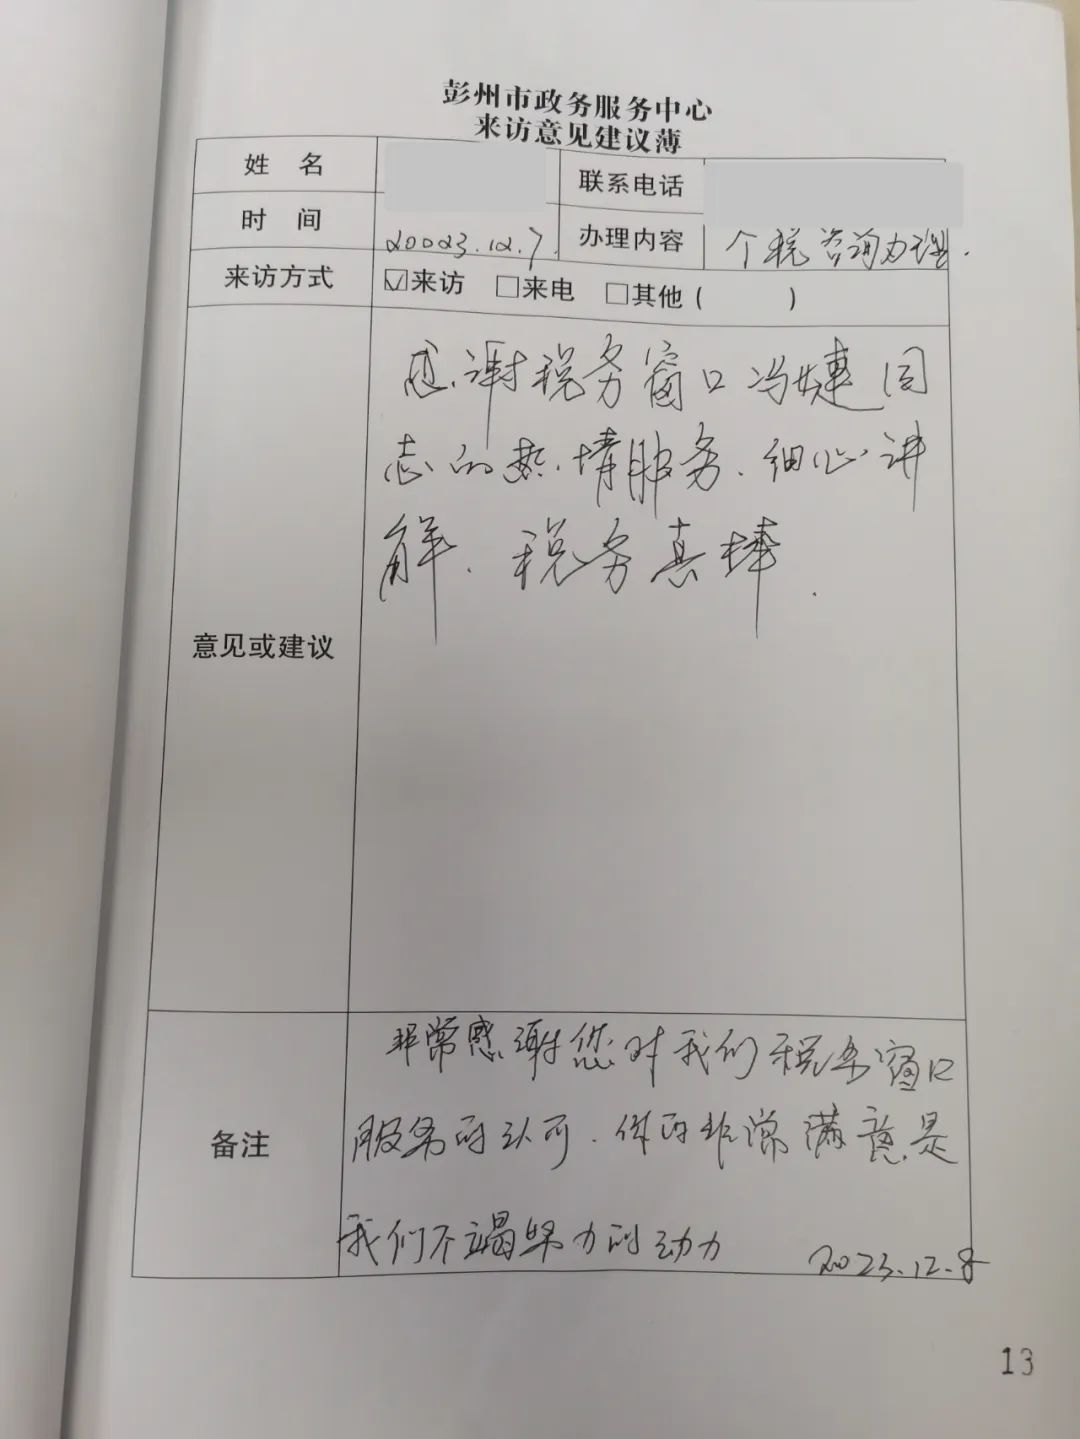 彭州市政务服务中心
来访意见建议薄
姓 名
联系电话
时 间 20023.12.7. 办理内容 个税咨询办理.
来访方式 ☑来访 □来电 □其他( )
感谢税务窗口冯婕同
志的热情服务.细心讲
解.税务真棒.
意见或建议
非常感谢您对我们税务窗口
服务的认可.您的非常满意是
备注
我们不竭努力的动力 2023.12.8
13